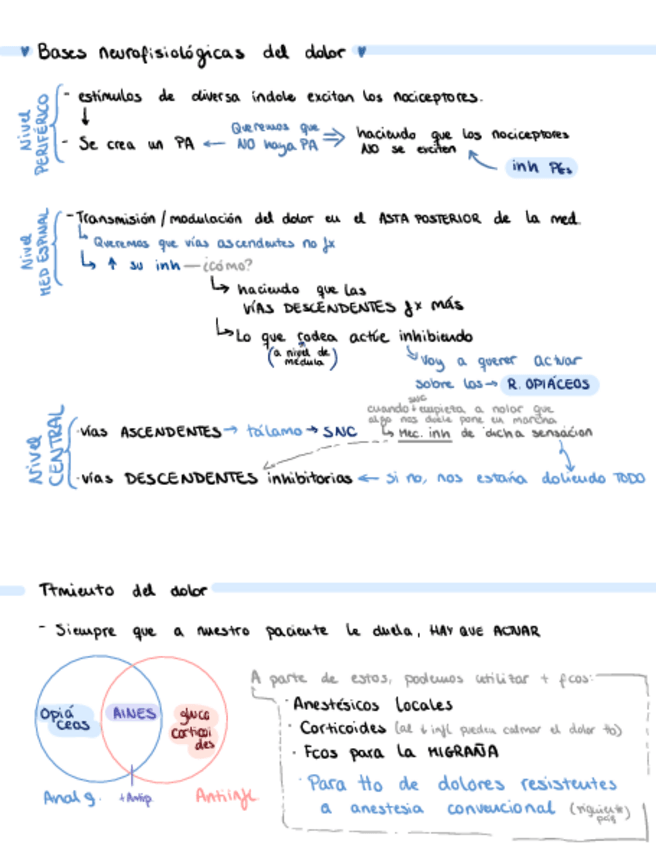 ♥ Bases neurofisiológicas del dolor ♥
Nivel PERIFÉRICO
- estímulos de diversa índole excitan los nociceptores.
↓
- Se crea un PA ← Queremos que NO haya PA ⇒ haciendo que los nociceptores NO se exciten
inh PGs
Nivel MED ESPINAL
- Transmisión / modulación del dolor en el ASTA POSTERIOR de la med.
↳ Queremos que vías ascendentes no fx
↳ ↑ su inh — ¿cómo?
↳ haciendo que las
VÍAS DESCENDENTES fx más
↳ Lo que rodea actúe inhibiendo
(a nivel de médula)
↳ Voy a querer actuar
sobre los → R. OPIÁCEOS
Nivel CENTRAL
SNC
cuando empieza a notar que
algo nos duele pone en marcha
↳ Mec. inh de dicha sensación
· vías ASCENDENTES → tálamo → SNC
· vías DESCENDENTES inhibitorias ← si no, nos estaría doliendo TODO
Ttmiento del dolor
- Siempre que a nuestro paciente le duela, HAY QUE ACTUAR
Opiáceos
AINES
glucocorticoides
Analg.
+Antip.
Antiinfl
A parte de estos, podemos utilizar + fcos:
· Anestésicos Locales
· Corticoides (al ↓ infl pueden calmar el dolor tb)
· Fcos para la MIGRAÑA
· Para tto de dolores resistentes
a anestesia convencional (siguiente pág)